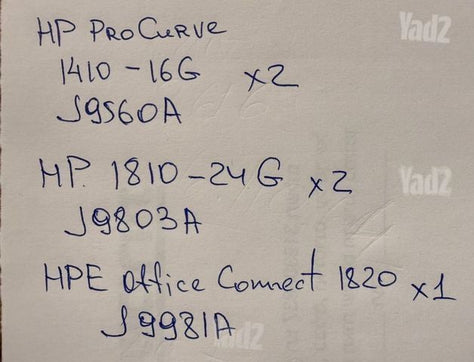 HP ProCurve
1410-16G x2
J9560A
HP. 1810-24G x2
J9803A
HPE Office Connect 1820 x1
J9981A
Yad2
Yad2
ad2